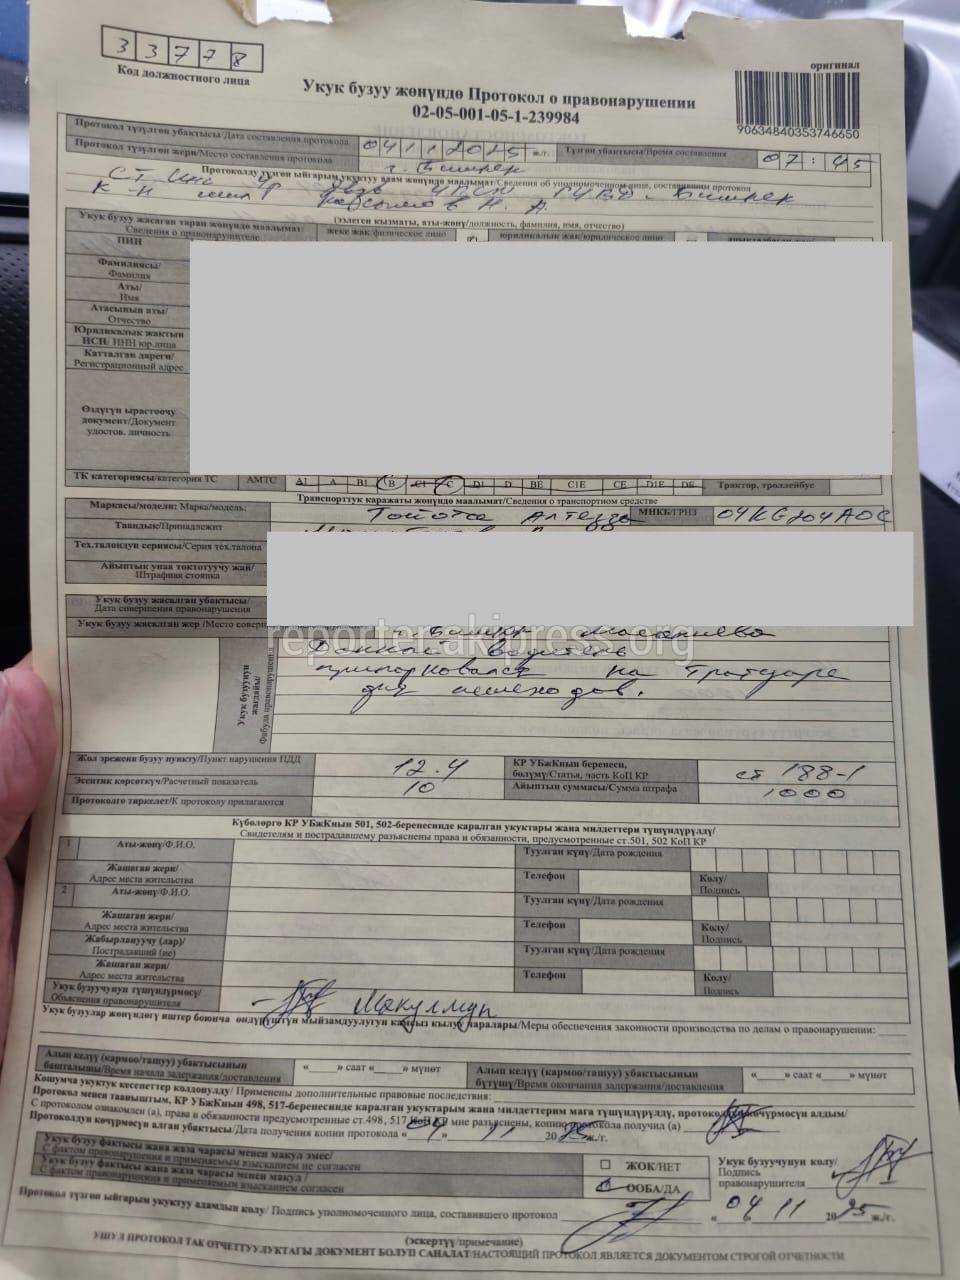 33778
Код должностного лица
оригинал
Укук бузуу жөнүндө Протокол о правонарушении
02-05-001-05-1-239984
90634840353746650
Протокол түзүлгөн убактысы/Дата составления протокола 04 11 2025 ж/г. Түзгөн убактысы/Время составления 07:45
Протокол түзүлгөн жери/Место составления протокола г. Бишкек
Протоколду түзгөн ыйгарым укуктуу адам жөнүндө маалымат/Сведения об уполномоченном лице, составившем протокол
(ээлеген кызматы, аты-жөнү/должность, фамилия, имя, отчество)
Укук бузуу жасаган таран жөнүндө маалымат/
Сведения о правонарушителе
жеке жак/физическое лицо
юридикалык жак/юридическое лицо
ПИН
Фамилиясы/
Фамилия
Аты/
Имя
Атасынын аты/
Отчество
Юридикалык жактын
ИСН/ ИНН юр.лица
Катталган дареги/
Регистрационный адрес
Өздүгүн ырастоочу
документ/Документ
удостов. личность
ТК категориясы/категория ТС АМТС A1 A B1 B C1 C D1 D BE C1E CE D1E DE Трактор, троллейбус
Транспорттук каражаты жөнүндө маалымат/Сведения о транспортном средстве
Маркасы/модели: Марка/модель: Тойота Алтезза МНКБ/ГРНЗ 04KG204AOC
Таандык/Принадлежит
Тех.талондун сериясы/Серия тех.талона
Айыптык унаа токтотуучу жай/
Штрафная стоянка
Укук бузуу жасалган убактысы/
Дата совершения правонарушения
Укук бузуу жасалган жер/Место соверш
reporter.akipress.org
Данный водитель
припарковался на тротуаре
для пешеходов.
Укук бузуунун
жагдайы/
Фабула правонарушен
Жол эрежени бузуу пункту/Пункт нарушения ПДД 12.4 КР УБжКнын беренеси,
бөлүмү/Статья, часть КоП КР ст 188-1
Эсептик көрсөткүч/Расчетный показатель 10 Айыптын суммасы/Сумма штрафа 1000
Протоколго тиркелет/К протоколу прилагаются
Күбөлөргө КР УБжКнын 501, 502-беренесинде каралган укуктары жана милдеттери түшүндүрүлдү/
Свидетелям и пострадавшему разъяснены права и обязанности, предусмотренные ст.501, 502 КоП КР
1 Аты-жөнү/Ф.И.О. Туулган күнү/Дата рождения
Жашаган жери/
Адрес места жительства
Телефон Колу/
Подпись
2 Аты-жөнү/Ф.И.О. Туулган күнү/Дата рождения
Жашаган жери/
Адрес места жительства
Телефон Колу/
Подпись
Жабырлануучу (лар)/
Пострадавший (ие)
Туулган күнү/Дата рождения
Жашаган жери/
Адрес места жительства
Телефон Колу/
Подпись
Укук бузуучунун түшүндүрмөсү/
Объяснения правонарушителя
Макулмун
Укук бузуулар жөнүндөгү иштер боюнча өндүрүштүн мыйзамдуулугун камсыз кылуу чаралары/Меры обеспечения законности производства по делам о правонарушении:
Алып келүү (кармоо/ташуу) убактысынын
башталышы/Время начала задержания/доставления « » саат « » мүнөт
Алып келүү (кармоо/ташуу) убактысынын
бүтүшү/Время окончания задержания/доставления « » саат « » мүнөт
Кошумча укуктук кесепеттер колдонулду/ Применены дополнительные правовые последствия:
Протокол менен тааныштым, КР УБжКнын 498, 517-беренесинде каралган укуктарым жана милдеттерим мага түшүндүрүлдү, протоколдун көчүрмөсүн алдым/
С протоколом ознакомлен (а), права и обязанности предусмотренные ст.498, 517 КоП КР мне разъяснены, копию протокола получил (а)
Протоколдун көчүрмөсүн алган убактысы/Дата получения копии протокола « 04 » 11 2025 ж./г.
Укук бузуу фактысы жана жаза чарасы менен макул эмес/
С фактом правонарушения и применяемым взысканием не согласен ЖОК/НЕТ
Укук бузуу фактысы жана жаза чарасы менен макул /
С фактом правонарушения и применяемым взысканием согласен ООБА/ДА
Укук бузуучунун колу/
Подпись
правонарушителя
Протокол түзгөн ыйгарым укуктуу адамдын колу/ Подпись уполномоченного лица, составившего протокол « 04 11 2025 ж./г.
(эскертүү/примечание)
УШУЛ ПРОТОКОЛ ТАК ОТЧЕТТУУЛУКТАГЫ ДОКУМЕНТ БОЛУП САНАЛАТ/НАСТОЯЩИЙ ПРОТОКОЛ ЯВЛЯЕТСЯ ДОКУМЕНТОМ СТРОГОЙ ОТЧЕТНОСТИ